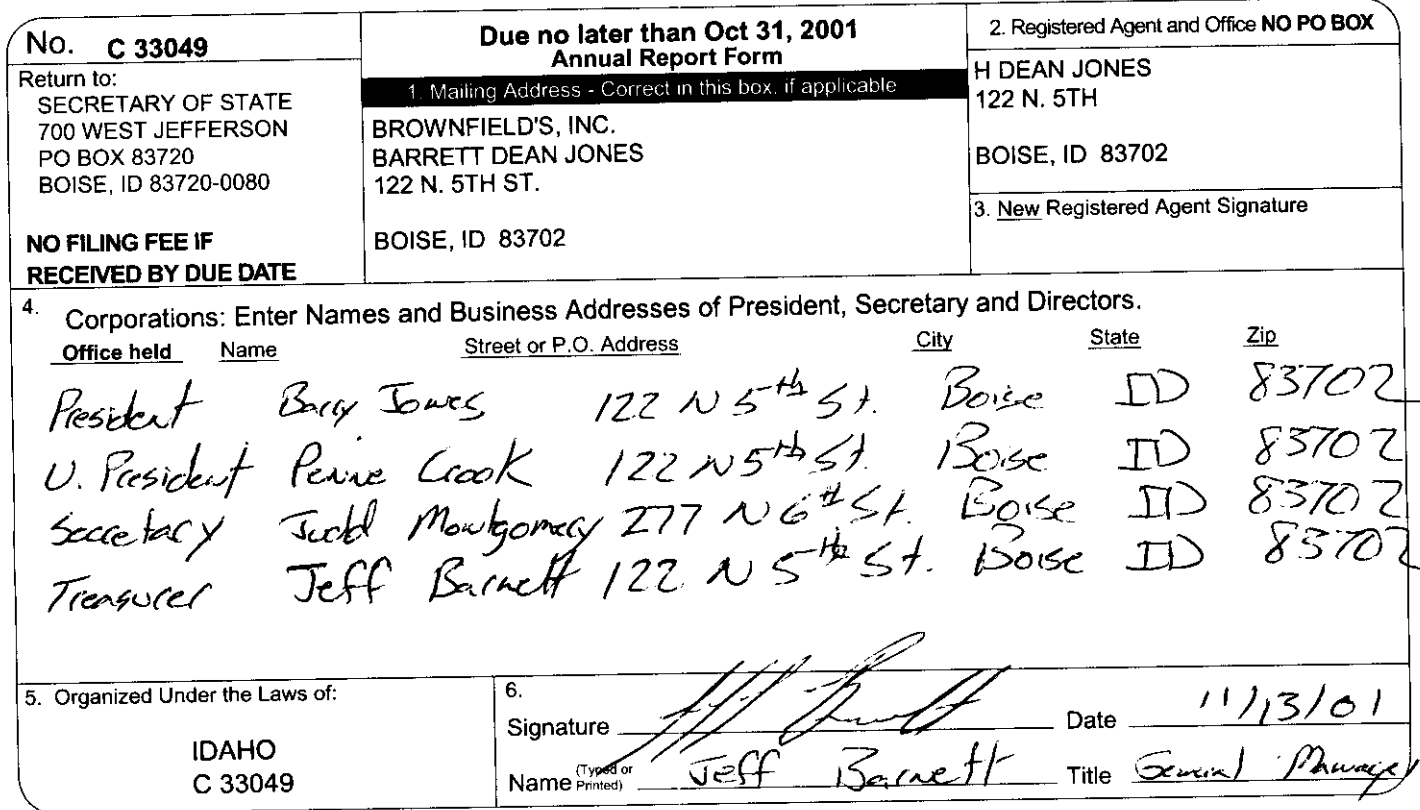 No. C 33049
Return to:
SECRETARY OF STATE
700 WEST JEFFERSON
PO BOX 83720
BOISE, ID 83720-0080
NO FILING FEE IF
RECEIVED BY DUE DATE
Due no later than Oct 31, 2001
Annual Report Form
1. Mailing Address - Correct in this box, if applicable
BROWNFIELD'S, INC.
BARRETT DEAN JONES
122 N. 5TH ST.
BOISE, ID 83702
2. Registered Agent and Office NO PO BOX
H DEAN JONES
122 N. 5TH
BOISE, ID 83702
3. New Registered Agent Signature
4. Corporations: Enter Names and Business Addresses of President, Secretary and Directors.
Office held Name Street or P.O. Address City State Zip
President Barry Jones 122 N 5th St. Boise ID 83702
V. President Penne Crook 122 N 5th St. Boise ID 83702
Secretary Judd Montgomery 277 N 6th St. Boise ID 83702
Treasurer Jeff Barnett 122 N 5th St. Boise ID 83702
5. Organized Under the Laws of:
IDAHO
C 33049
6.
Signature Date 11/13/01
Name (Typed or Printed) Jeff Barnett Title General Manager